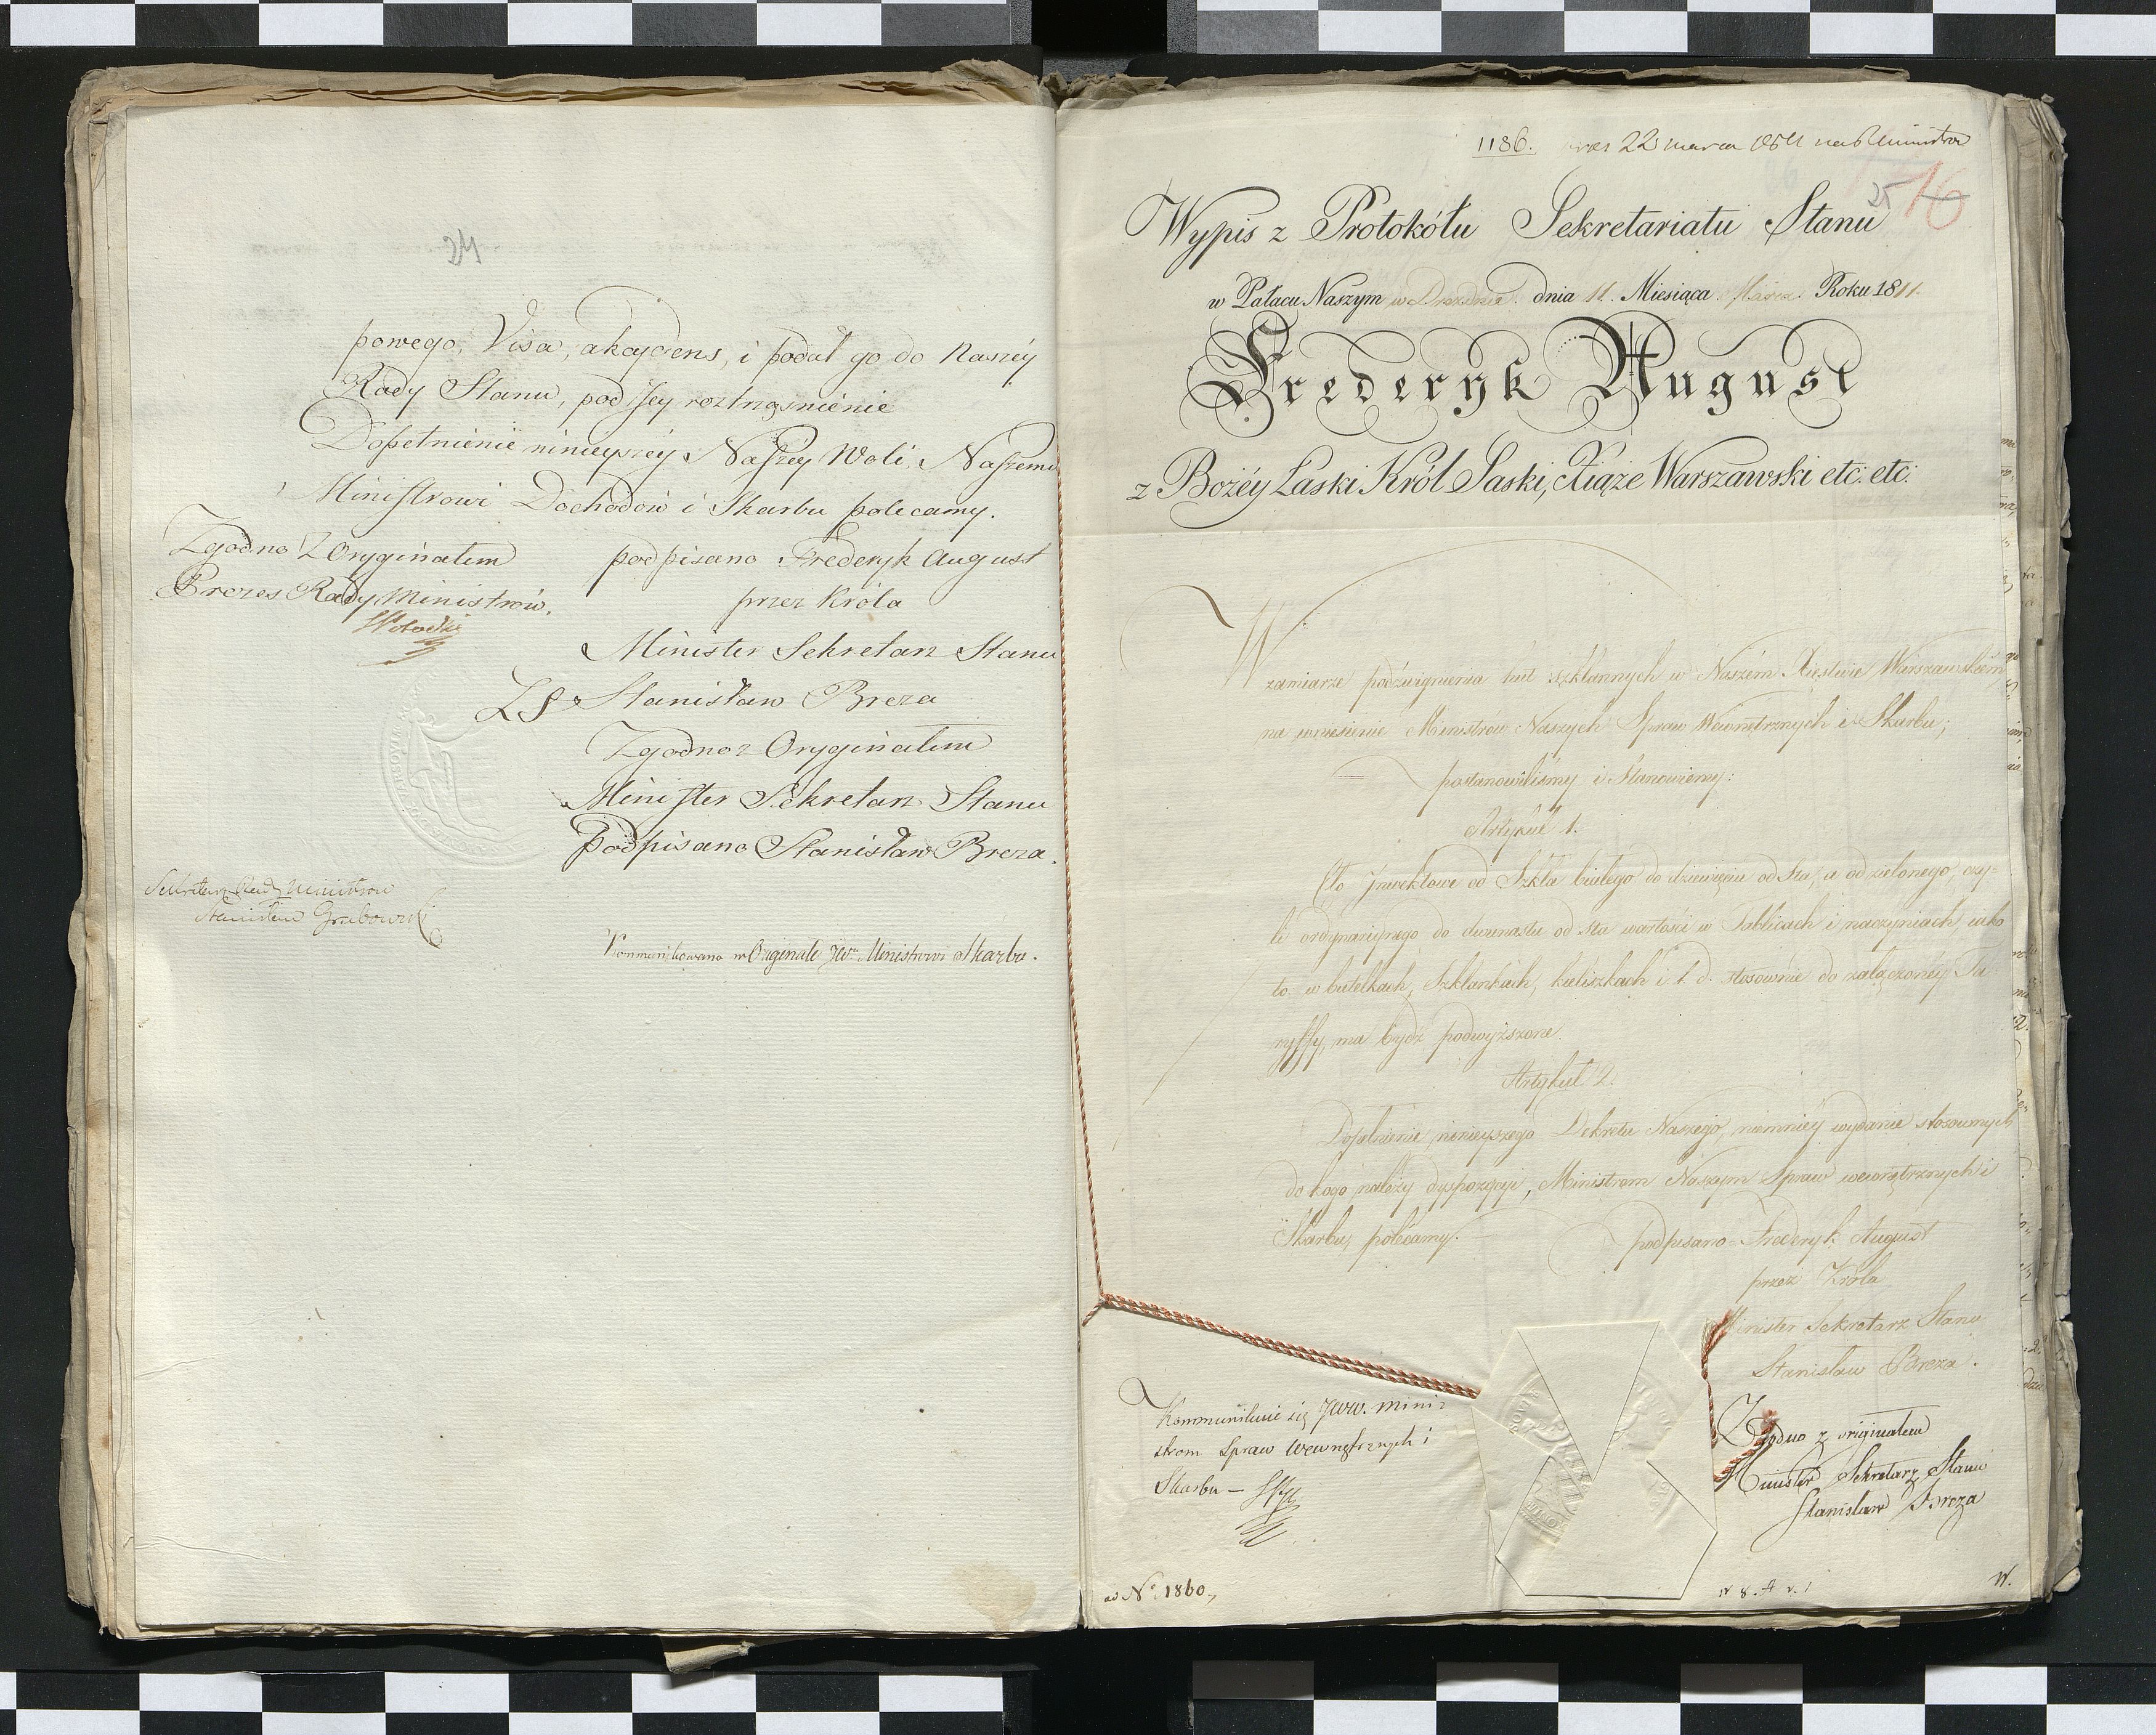 24
powego, Visa, akcydens, i podał go do Naszéy
Rady Stanu, pod Jey roztrząśnienie
Dopełnienie ninieyszéy Naszéy Woli, Naszemu
Ministrowi Dochodów i Skarbu polecamy.
Zgodno z Oryginałem
Prezes Rady Ministrów.
podpisano Frederyk August
przez Króla
Minister Sekretarz Stanu
LS Stanisław Breza
Zgodno z Oryginałem
Minister Sekretarz Stanu
Podpisano Stanisław Breza.
Sekretarz Rady Ministrów
Stanisław Grabowski
Kommunikowano w Originale JW. Ministrowi Skarbu.
1186. 22 marca 1811
25 16
Wypis z Protokółu Sekretariatu Stanu
w Pałacu Naszym w Dreźnie dnia 11. Miesiąca Marca. Roku 1811.
Frederyk August
z Bożéy Łaski Król Saski, Xiąże Warszawski etc: etc:
W
zamiarze podźwignienia hut szklannych w Naszém Xięstwie Warszawskiem
na wniesienie Ministrów Naszych Spraw Wewnetrznych i Skarbu;
postanowiliśmy i Stanowiemy:
Artykuł 1.
Cło od Szkła białego do dziewięciu od Sta, a od zielonego, czy-
li ordynaryinego do dwunastu od sta wartości w Tablicach i naczyniach, iako
to w butelkach, Szklankach, kieliszkach i t. d. stosownie do załączonéy Ta
ryffy, ma bydź podwyższone.
Artykuł 2.
Dopełnienie ninieyszego Dekretu Naszego, niemniéy wydanie stosownych
do kogo należy dyspozycyi, Ministrom Naszym Spraw wewnętrznych i
Skarbu, polecamy.
podpisano Frederyk August
przez Króla
Minister Sekretarz Stanu
Stanisław Breza.
Kommunikuie się JWW. Mini-
strom Spraw Wewnętrznych i
Skarbu —
Zgodno z originałem
Minister Sekretarz Stanu
Stanisław Breza
ad N° 1860.
W.